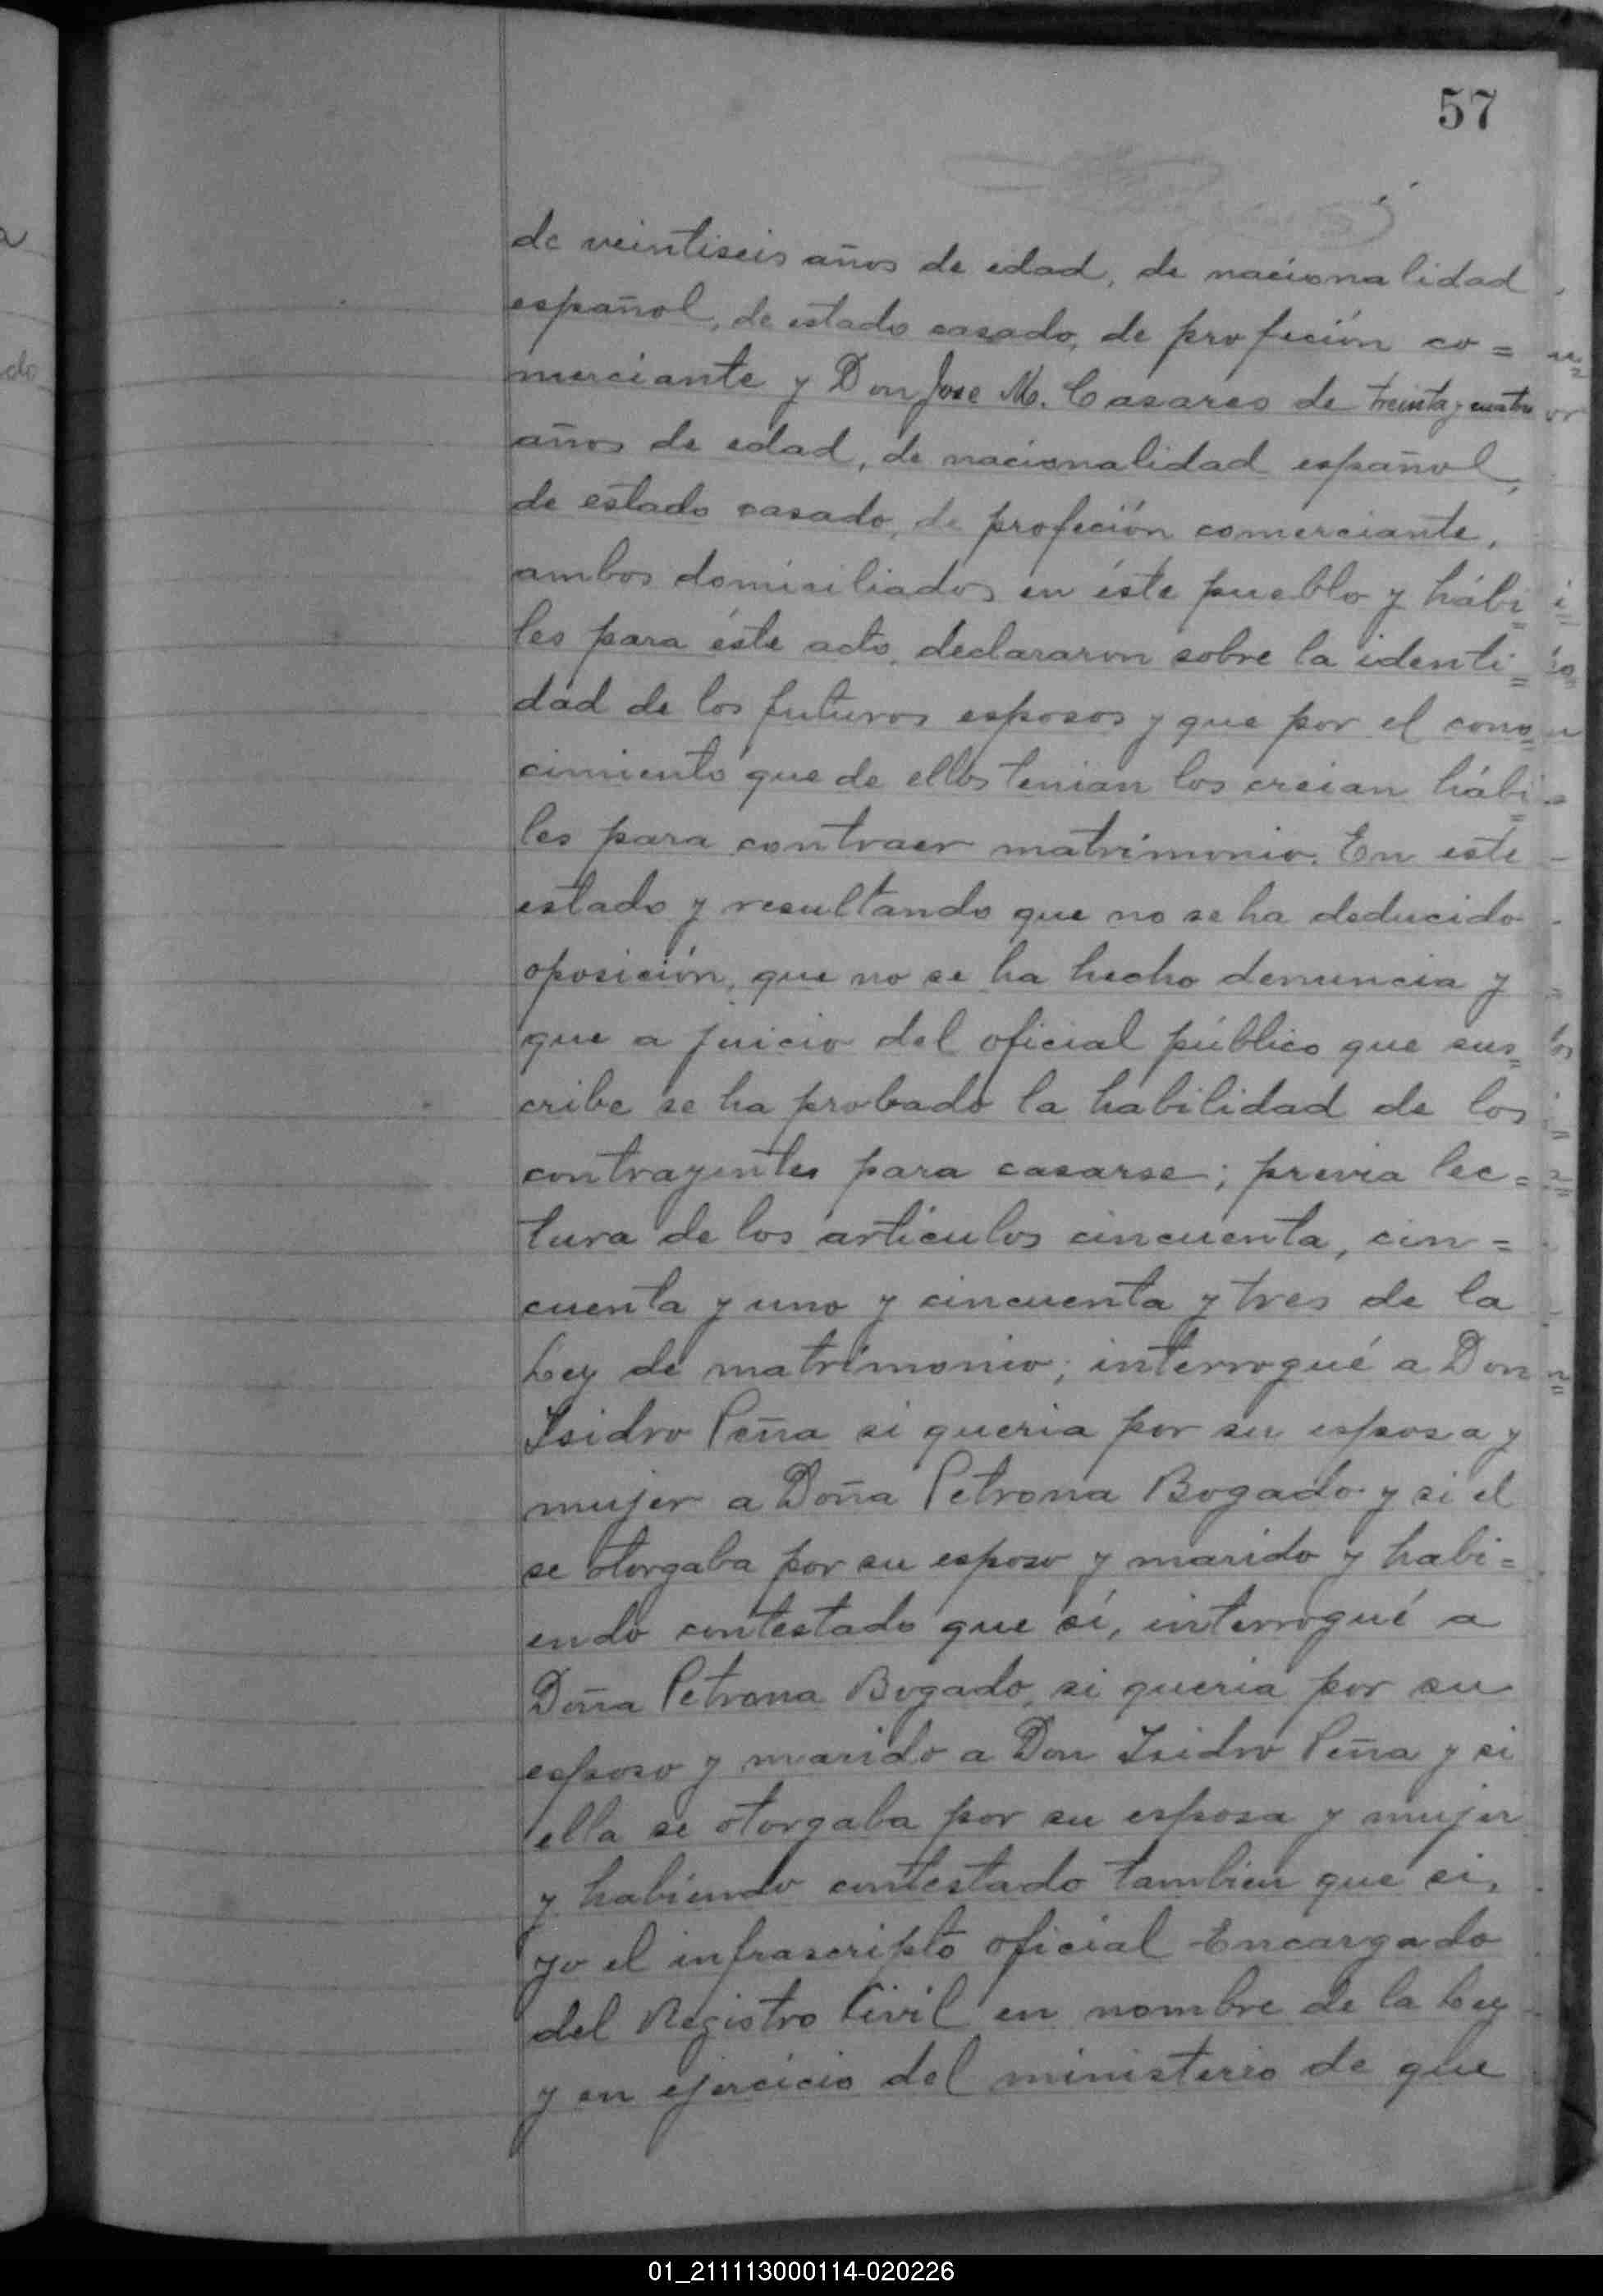 57
de veintiseis años de edad, de nacionalidad
español, de estado casado, de profeción co=
merciante y Don Jose M. Casares de treinta y cuatro
años de edad, de nacionalidad español,
de estado casado, de profeción comerciante,
ambos domiciliados en éste pueblo y hábi=
les para éste acto, declararon sobre la identi=
dad de los futuros esposos y que por el cono=
cimiento que de ellos tenian los creian hábi=
les para contraer matrimonio. En este
estado y resultando que no se ha deducido
oposición, que no se ha hecho denuncia y
que a juicio del oficial público que sus=
cribe se ha probado la habilidad de los
contrayentes para casarse; previa lec=
tura de los artículos cincuenta, cin=
cuenta y uno y cincuenta y tres de la
Ley de matrimonio; interrogué a Don
Isidro Peña si queria por su esposa y
mujer a Doña Petrona Bogado y si el
se otorgaba por su esposo y marido y habi=
endo contestado que sí, interrogué a
Doña Petrona Bogado, si queria por su
esposo y marido a Don Isidro Peña y si
ella se otorgaba por su esposa y mujer
y habiendo contestado tambien que si,
yo el infrascripto oficial Encargado
del Registro Civil en nombre de la Ley
y en ejercicio del ministerio de que
01_211113000114-020226